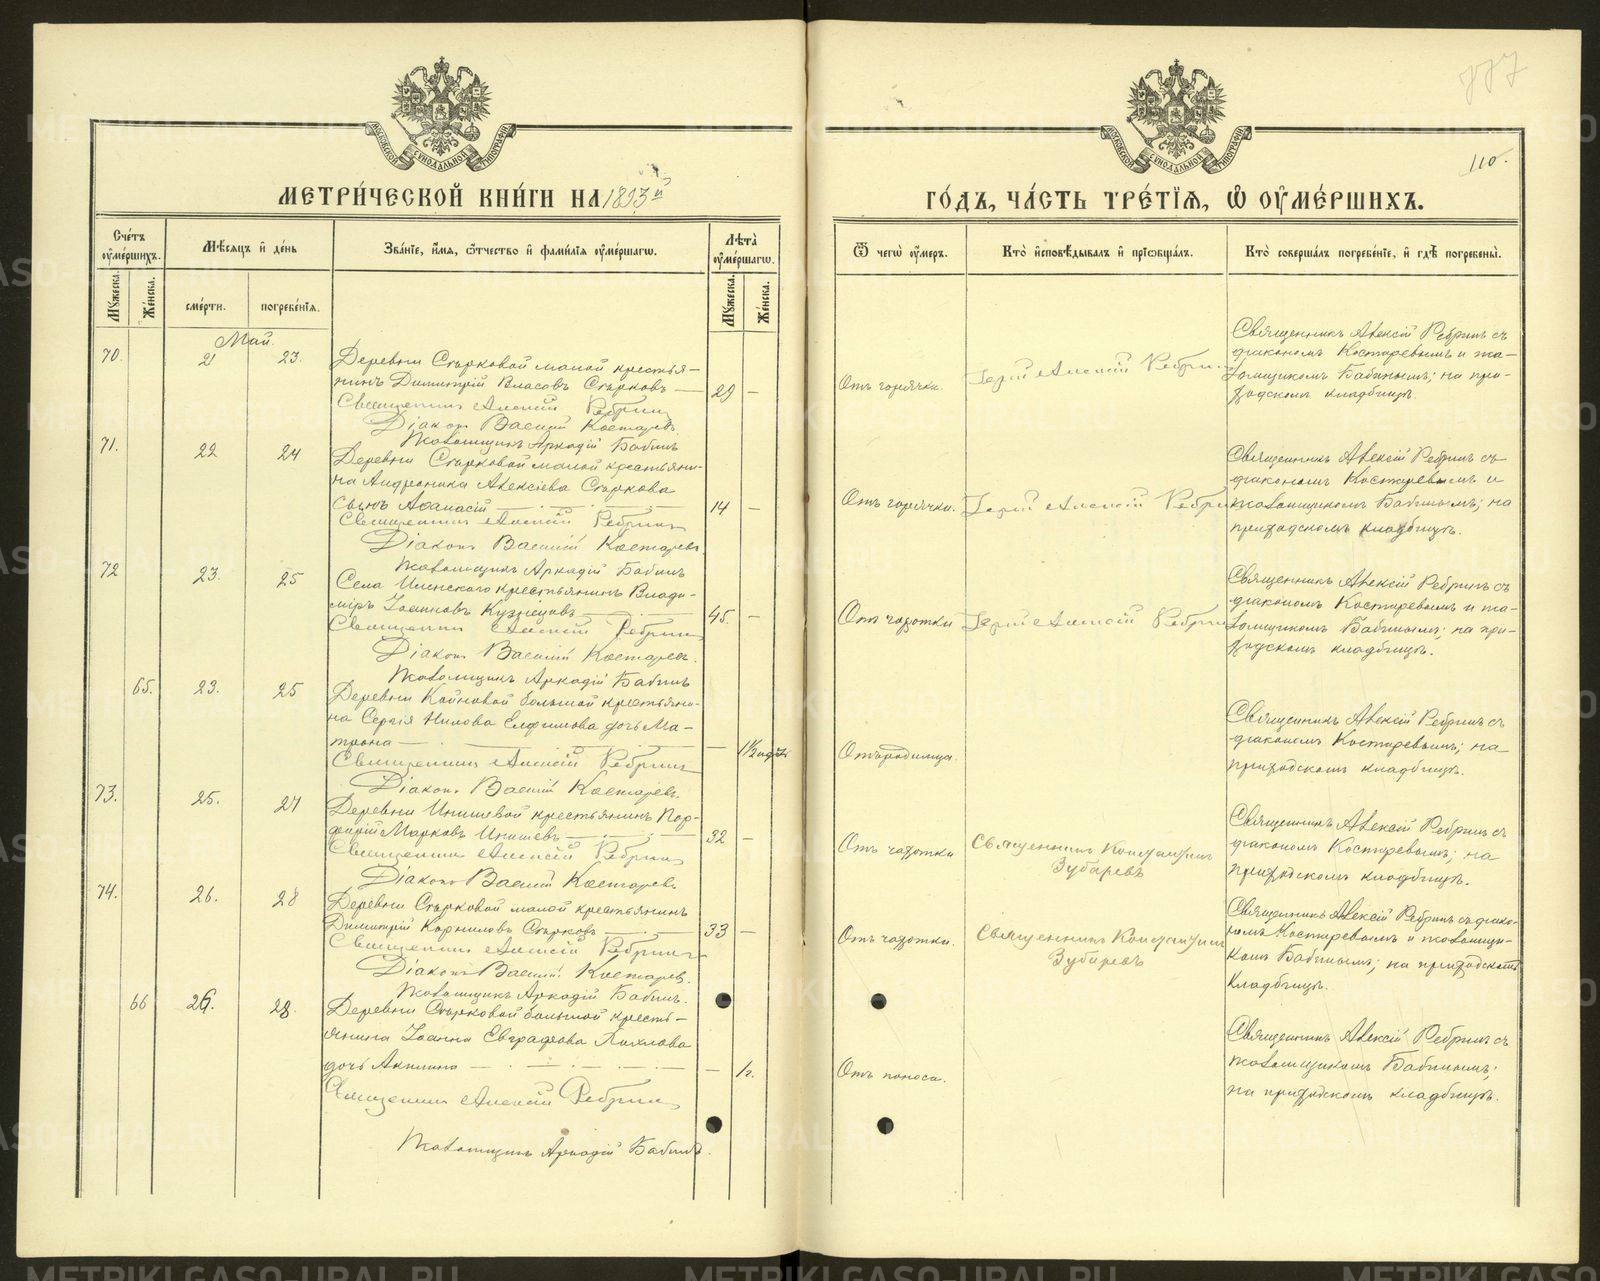 МЕТРИЧЕСКОЙ КНИГИ НА 1893й
Счетъ оумершихъ.
Мужеска.
Женска.
Месяцъ и день
смерти.
погребения.
Званіе, имя, отчество и фамилія оумершагѡ.
Лѣта оумершагѡ.
Мужеска.
Женска.
Май.
70. 21 23. Деревни Старковой малой крестья-
нинъ Димитрій Власовъ Старковъ — 29 —
Священникъ Алексій Ребринъ
Діаконъ Василій Костаревъ
Псаломщикъ Аркадій Бабинъ
71. 22 24 Деревни Старковой малой крестьяни-
на Андроника Алексіева Старкова
сынъ Афанасій — 14 —
Священникъ Алексій Ребринъ
Діаконъ Василій Костаревъ
Псаломщикъ Аркадій Бабинъ
72 23. 25 Села крестьянинъ Влади-
міръ Іоанновъ Кузнецовъ — 45. —
Священникъ Алексій Ребринъ
Діаконъ Василій Костаревъ.
Псаломщикъ Аркадій Бабинъ
65. 23. 25 Деревни большой крестьяни-
на Сергія Нилова дочь Ма-
трона — — 1½
Священникъ Алексій Ребринъ
Діаконъ Василій Костаревъ.
73. 25. 27 Деревни крестьянинъ Пор-
фирій Марковъ — 32 —
Священникъ Алексій Ребринъ
Діаконъ Василій Костаревъ
74. 26. 28 Деревни Старковой малой крестьянинъ
Димитрій Корниловъ Старковъ — 33 —
Священникъ Алексій Ребринъ
Діаконъ Василій Костаревъ.
Псаломщикъ Аркадій Бабинъ.
66 26. 28. Деревни Старковой большой кресть-
янина Іоанна Евграфова
дочь Акилина — — 1г.
Священникъ Алексій Ребринъ
Псаломщикъ Аркадій Бабинъ.
777
110.
ГОДЪ, ЧАСТЬ ТРЕТІЯ, Ѡ ОУМЕРШИХЪ.
Ѿ чегѡ оумеръ.
Кто исповѣдывалъ и пріѡбщалъ.
Кто совершалъ погребеніе, и гдѣ погребены.
Отъ горячки. Іерей Алексій Ребринъ
Священникъ Алексій Ребринъ съ
діакономъ Костаревымъ и пса-
ломщикомъ Бабинымъ; на при-
ходскомъ кладбищѣ.
Отъ горячки. Іерей Алексій Ребринъ
Священникъ Алексій Ребринъ съ
діакономъ Костаревымъ и
псаломщикомъ Бабинымъ; на
приходскомъ кладбищѣ.
Отъ чахотки Іерей Алексій Ребринъ
Священникъ Алексій Ребринъ съ
діакономъ Костаревымъ и пса-
ломщикомъ Бабинымъ; на при-
ходскомъ кладбищѣ.
Отъ родимца.
Священникъ Алексій Ребринъ съ
діакономъ Костаревымъ; на
приходскомъ кладбищѣ.
Отъ чахотки Священникъ Константинъ
Зубаревъ
Священникъ Алексій Ребринъ съ
діакономъ Костаревымъ; на
приходскомъ кладбищѣ.
Отъ чахотки. Священникъ Константинъ
Зубаревъ
Священникъ Алексій Ребринъ съ діако-
номъ Костаревымъ и псаломщи-
комъ Бабинымъ; на приходскомъ
кладбищѣ.
Отъ поноса.
Священникъ Алексій Ребринъ съ
псаломщикомъ Бабинымъ;
на приходскомъ кладбищѣ.
METRIKI.GASO-URAL.RU